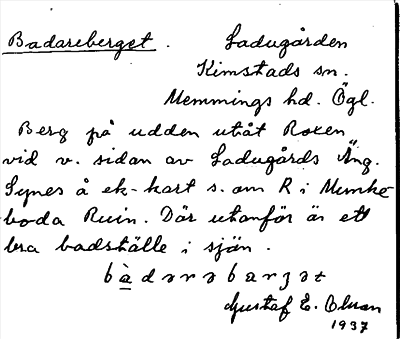 Badareberget. Ladugården
Kimstads sn.
Memmings hd. Ögl.
Berg på udden utåt Roxen
vid v. sidan av Ladugårds Äng.
Synes å ek-kart s. om R i Munke
boda Ruin. Där utanför är ett
bra badställe i sjön.
bàdərəbarʒət
Gustaf E. Olsson
1937